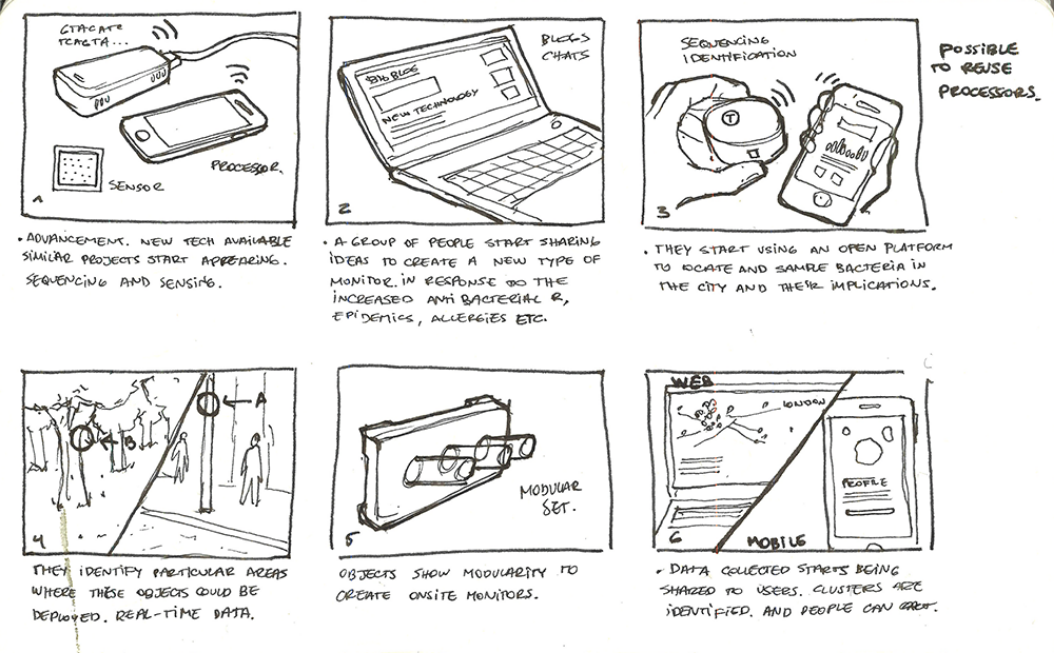 GTACATC
TCAGTA...
PROCESSOR.
SENSOR
1
• ADVANCEMENT. NEW TECH AVAILABLE
SIMILAR PROJECTS START APPEARING.
SEQUENCING AND SENSING.
BLOGS
CHATS
BIO BLOG
NEW TECHNOLOGY
2
• A GROUP OF PEOPLE START SHARING
IDEAS TO CREATE A NEW TYPE OF
MONITOR. IN RESPONSE TO THE
INCREASED ANTI BACTERIAL R,
EPIDEMICS, ALLERGIES ETC.
SEQUENCING
IDENTIFICATION
T
3
POSSIBLE
TO REUSE
PROCESSORS.
• THEY START USING AN OPEN PLATFORM
TO LOCATE AND SAMPLE BACTERIA IN
THE CITY AND THEIR IMPLICATIONS.
A
B
4
THEY IDENTIFY PARTICULAR AREAS
WHERE THESE OBJECTS COULD BE
DEPLOYED. REAL-TIME DATA.
MODULAR
SET.
5
OBJECTS SHOW MODULARITY TO
CREATE ONSITE MONITORS.
WEB
LONDON
PROFILE
6
MOBILE
• DATA COLLECTED STARTS BEING
SHARED TO USERS. CLUSTERS ARE
IDENTIFIED. AND PEOPLE CAN